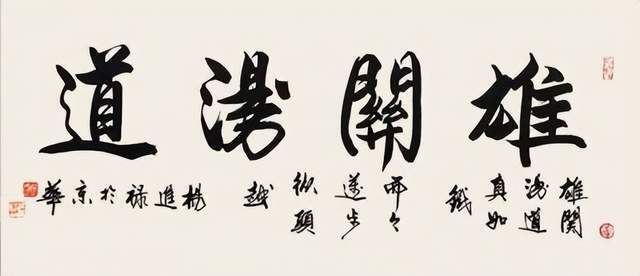 雄關漫道
雄關
漫道
真如
鐵
而今
邁步
從頭
越
楊進祿於京華